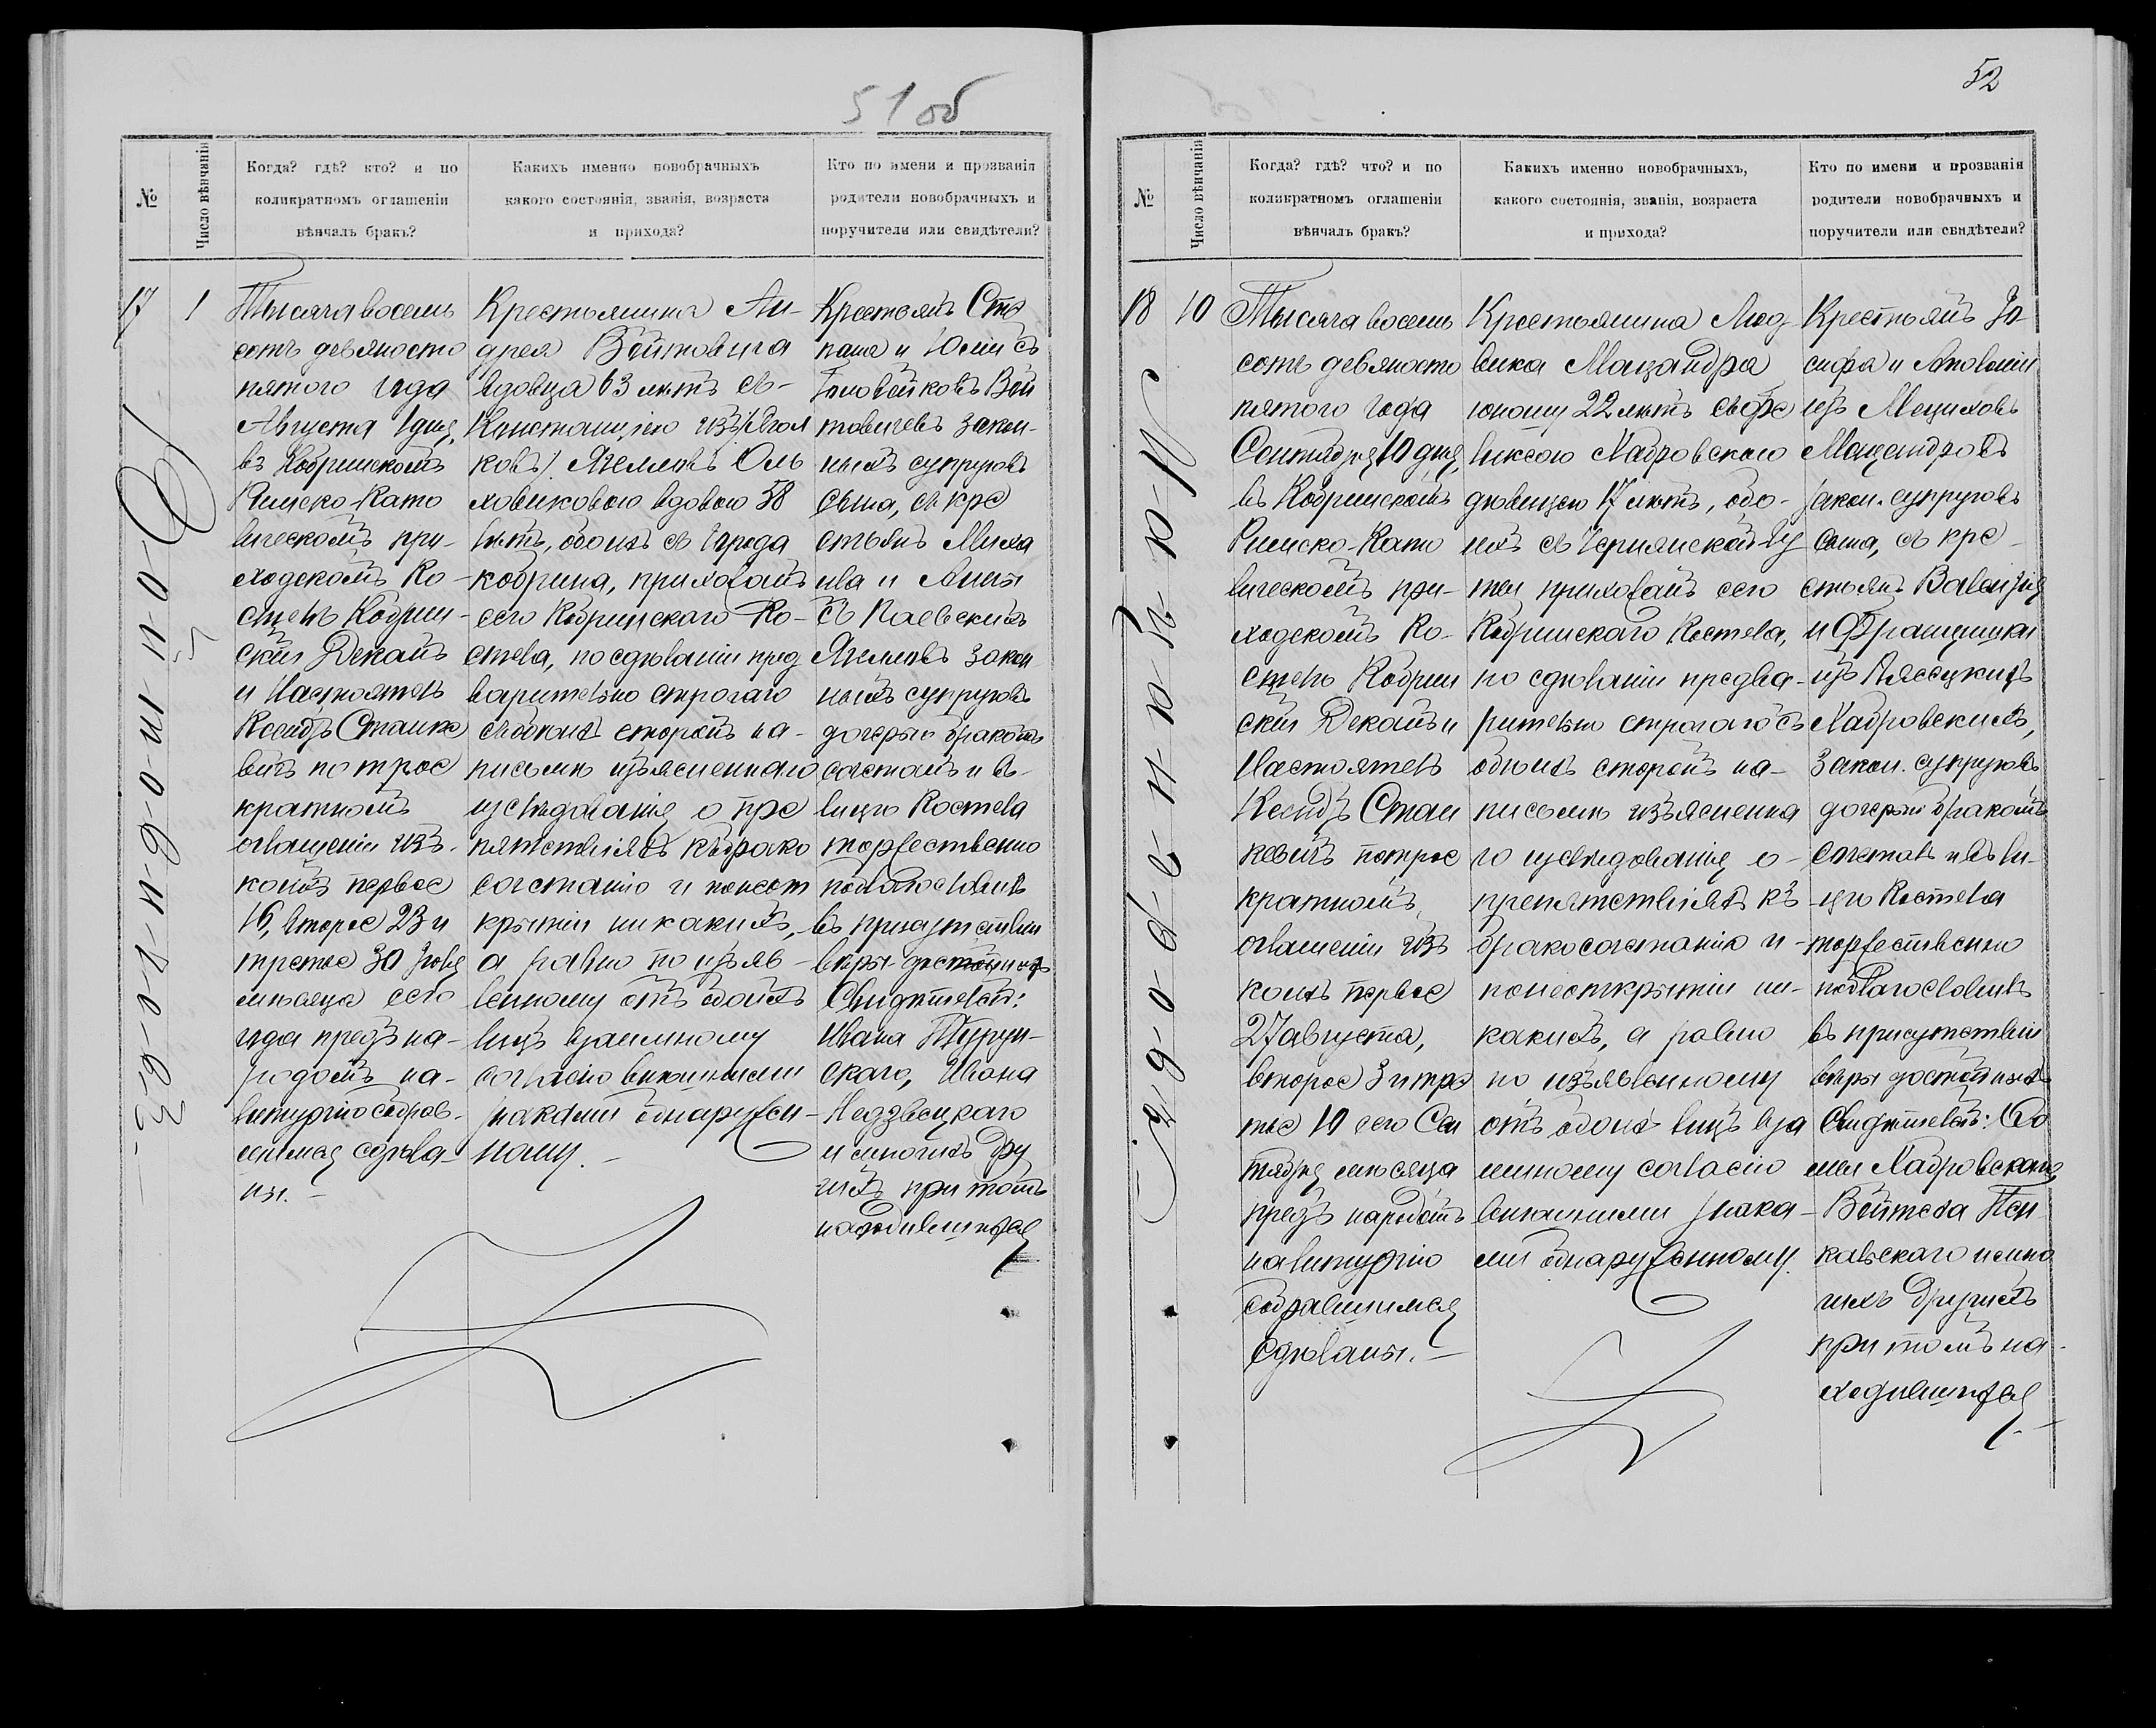 51 об
№
Число вѣнчанія
Когда? гдѣ? кто? и по
коликратномъ оглашеніи
вѣнчалъ бракъ?
Какихъ именно новобрачныхъ
какого состоянія, званія, возраста
и прихода?
Кто по имени и прозванія
родители новобрачныхъ и
поручители или свидѣтели?
17
1
Тысяча восемь
сотъ девяносто
пятого года
Августа 1 дня,
въ Кобринскомъ
Римско-Като
лическомъ при-
ходскомъ Ко-
стелѣ Кобрин-
скій Деканъ
и Настоятель
Ксендзъ Станке
вичъ по трое
кратномъ
оглашеніи изъ
коихъ первое
16, второе 23 и
третье 30 Іюля
мѣсяца сего
года предъ на-
родомъ на
литургію собрав-
шимся сдѣла-
ны.-
Крестьянина Ан-
дрея Войтовича
вдовца 63 лѣтъ съ-
Констанціею изъ
ковъ/ Ягелловъ Оль
ховиковою вдовою 58
лѣтъ, обоихъ съ города
Кобрина, прихожанъ
сего Кобринского Ко-
стела, по сдѣланіи пред
варительно строгаго
съ обоихъ сторонъ на-
письмѣ изъясненнаго
изслѣдованія о пре
пятствіяхъ къ брако
сочетанію и неот
крытіи никакихъ,
а равно по изъяв-
ленному отъ обоихъ
лицъ взаимному
согласію внѣшними
знаками обнаружен-
ному.-
Крестьянъ Сте
пана и Юліи съ
Головейковъ Вой
товичевъ закон-
ныхъ супруговъ
сына, съ кре
стьянъ Миха
ила и Анны
съ Паевскихъ
Ягелловъ закон
ныхъ супруговъ
дочерью бракомъ
сочеталъ и въ-
лицѣ Костела
торжественно
поблагословилъ
въ присутствіи
вѣры достойныхъ
Свидѣтелей:
Ивана Турун-
скаго, Ивана
Недзвецкаго
и многихъ дру
гихъ при томъ
находившихся
52
№
Число вѣнчанія
Когда? гдѣ? что? и по
коликратномъ оглашеніи
вѣнчалъ бракъ?
Какихъ именно новобрачныхъ,
какого состоянія, званія, возраста
и прихода?
Кто по имени и прозванія
родители новобрачныхъ и
поручители или свидѣтели?
18
10
Тысяча восемь
сотъ девяносто
пятого года
Сентября 10 дня,
въ Кобринскомъ
Римско-Като
лическомъ при-
ходскомъ Ко-
стелѣ Кобрин
скій Деканъ и
Настоятель
Ксендзъ Стан
кевичъ по трое
кратномъ
оглашеніи изъ
коихъ первое
27 августа,
второе 3 и тре
тье 10 сего Сен
тября мѣсяца
предъ народомъ
на литургію
собравшимся
сдѣланы.-
Крестьянина Люд
вика Мацандра
юношу 22 лѣтъ съ Фе
ликсою Хабровскаго
дѣвицею 17 лѣтъ, обо-
ихъ съ
прихожанъ сего
Кобринскаго Костела,
по сдѣланіи предва-
рительно строгаго съ
обоихъ сторонъ на-
письмѣ изъяснена
го изслѣдованія о-
препятствіяхъ къ
бракосочетанію и-
неоткрытіи ни-
какихъ, а равно
по изъявленному
отъ обоихъ лицъ вза
имному согласію
внѣшними знака-
ми обнаруженному.
Крестьянъ Іо-
сифа и Аполоніи
изъ Мецихъ
Мацандровъ
закон. супруговъ
сына, съ кре-
стьянъ Валентія
и Францишки
изъ Лясецкихъ
Хабровскихъ,
закон. супруговъ
дочерью бракомъ
сочеталъ и въ ли-
цѣ Костела
торжественно
поблагословилъ
въ присутствіи
вѣры достойныхъ
Свидѣтелей:
Хабровскаго,
Войтеха Пен
кальскаго и мно
гихъ другихъ
при томъ на-
ходившихся